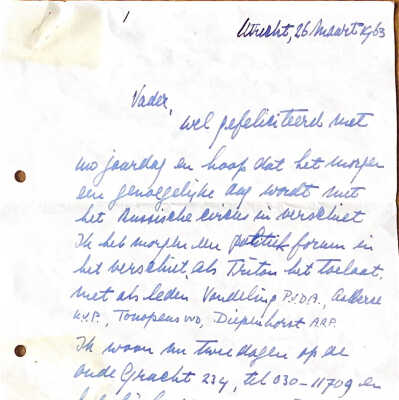 Utrecht, 26 Maart 1963
Vader,
wel gefeliciteerd met
uw jaardag en hoop dat het morgen
een genoegelijke dag wordt met
het Russische circus in verschiet
Ik heb morgen een politiek forum in
het verschiet, als Triton het toelaat,
met als leden Vondeling P.v.d.A.,
K.V.P., Toxopeus VVD, Diepenhorst A.R.P.
Ik woon nu twee dagen op de
oude Gracht 234, tel 030-11709 en